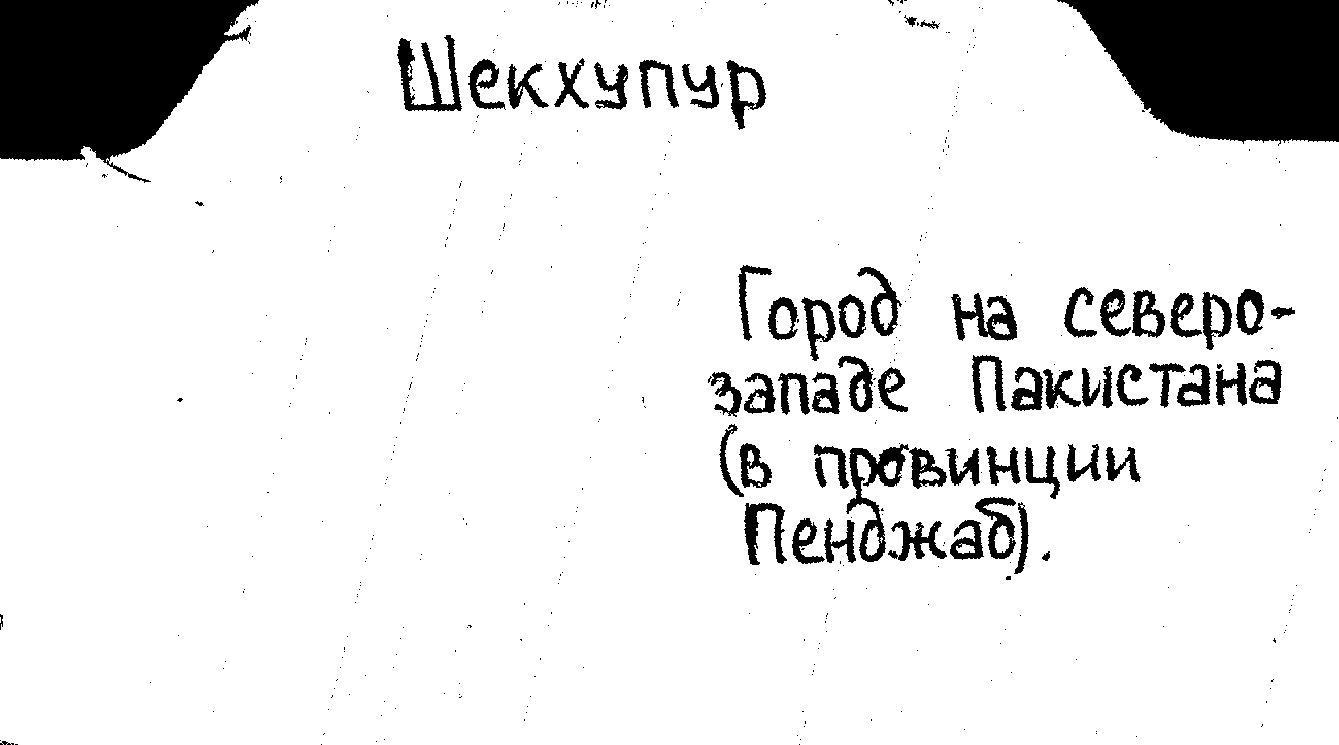 Шекхупур
Город на северо-
западе Пакистана
(в провинции
Пенджаб).